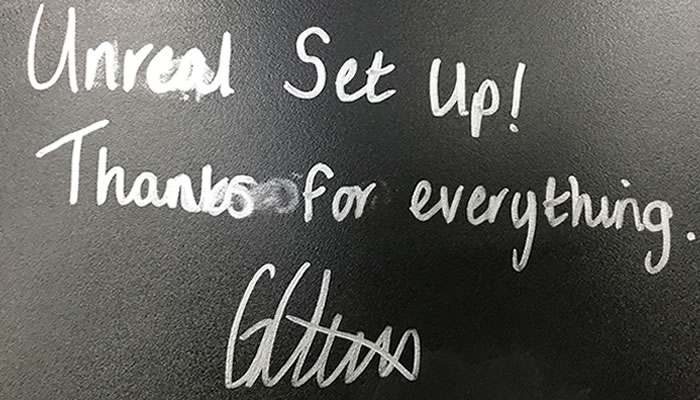 Unreal Set Up!
Thanks for everything.